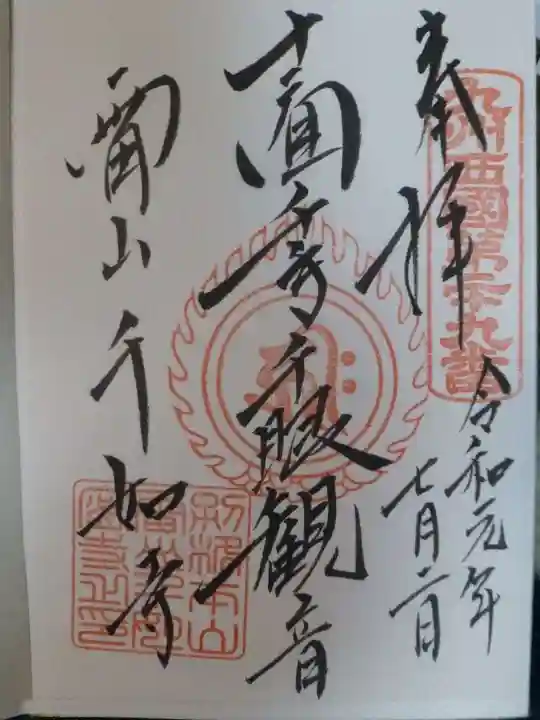 奉拝
九州西國第二十九番
令和元年
七月二日
十一面千手千眼観音
雷山千如寺